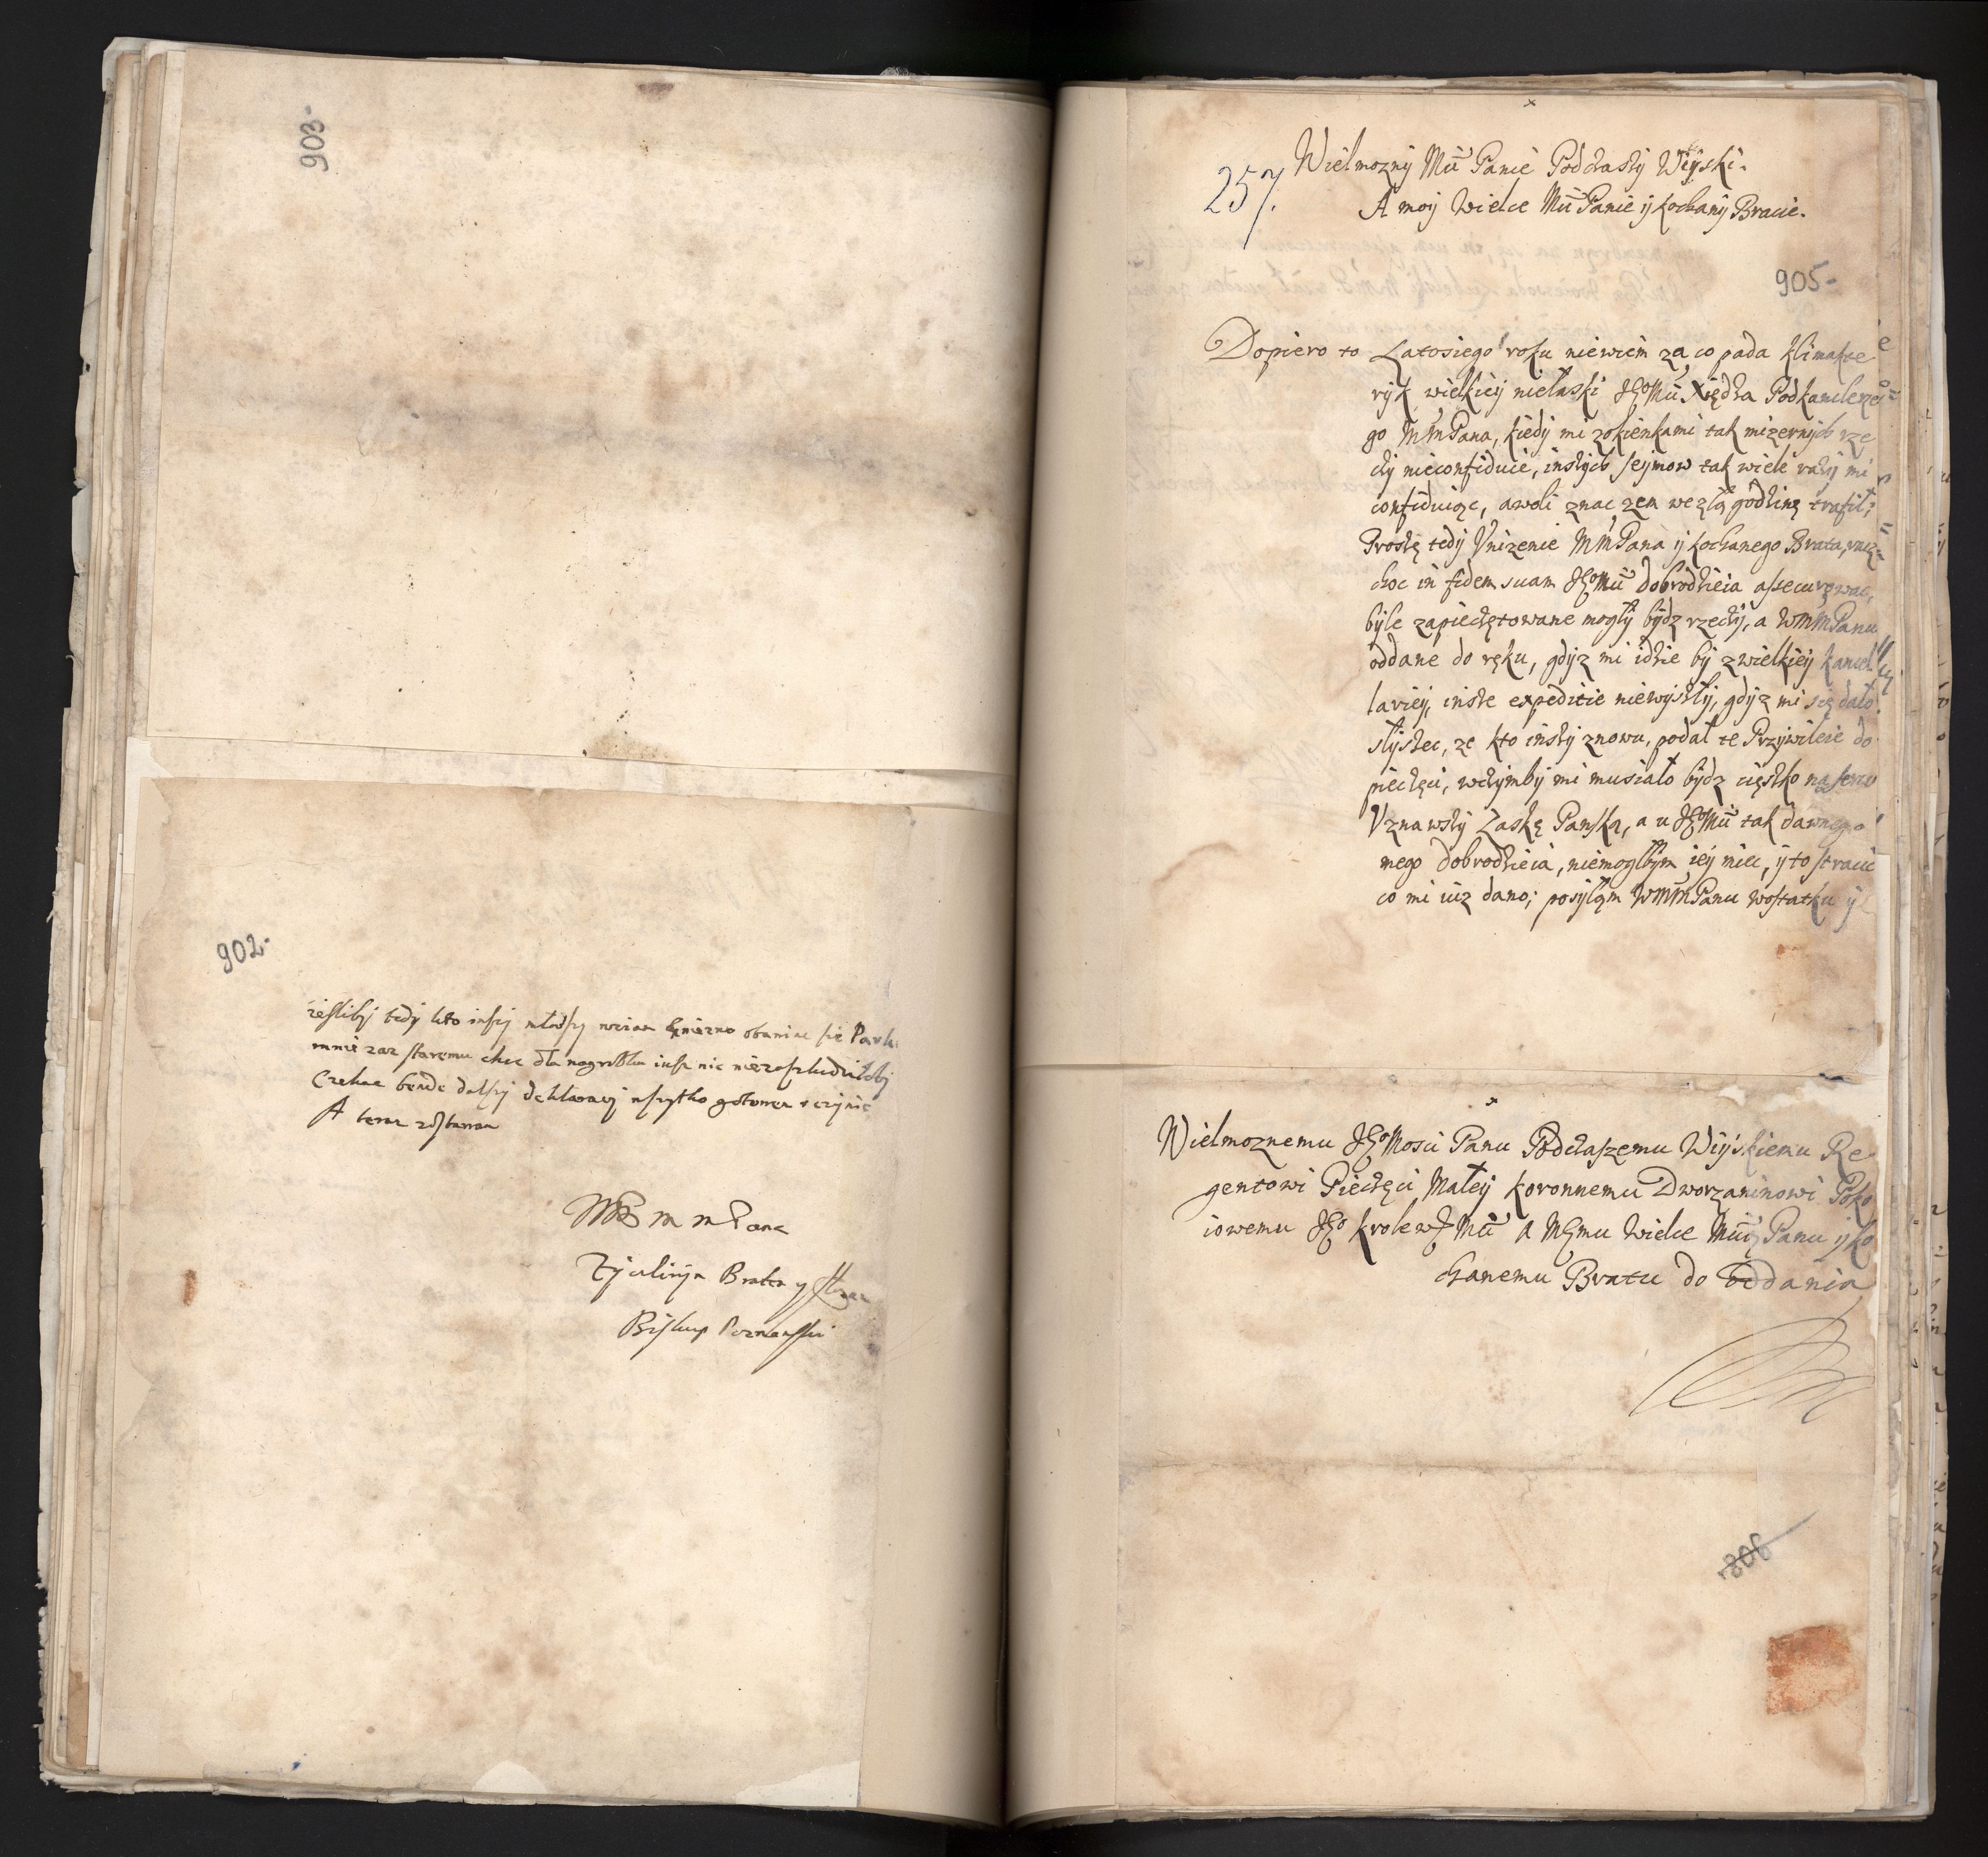 903-
902-
ieslibÿ tedÿ kto inszÿ młodszÿ
mnie zas staremu choc dla nagrobku
Czekac bende dalszÿ deklaraciÿ wszytko gotowem uczÿnic
A teraz zostawam
WM m m Pana
Zÿczliwÿm Bratem y sługą
Biskup Poznanski
257.
Wielmoznÿ Mći Panie Podczaszÿ Wÿski.
A moÿ Wielce Mći Panie ÿ kochanÿ Bracie.
905-
Dopiero to Latosiego roku niewiem za co pada klimakte
rÿk wielkieÿ niełaski JEoMći Xiędza Podkanclerze
go MMPana, kiedÿ mi zokienkami tak mizernÿch rze
czÿ nieconfiduie, inszÿch seÿmow tak wiele razÿ mi
confiduiąc, awoli znac zem wezłą godzinę trafił;
Proszę tedÿ Vnizenie MMPana ÿ kochanego Brata, racz
choc in fidem suam JEoMći dobrodzieia assecurowac,
bÿle zapieczętowane mogłÿ bÿdz rzeczÿ, a WMMPanu
oddane do ręku, gdÿz mi idzie bÿ zwielkieÿ kancel
larieÿ, insze expeditie niewÿszłÿ, gdÿz mi się dało
słÿszec, ze kto inszÿ znowu, podał te Przÿwileie do
pieczęci, wczÿmbÿ mi musiało bÿdz cięszko na sercu
Vznawszÿ Łaskę Pańską, a u JEoMći tak dawnego
mego dobrodzieia, niemogłbÿm ieÿ miec, ÿ to stracic
co mi iuz dano; posÿłąm WMMPanu wostatku ÿ
Wielmoznemu JEoMosci Panu Podczaszemu Wÿskiemu Re
gentowi Pieczęci Małeÿ koronnemu Dworzaninowi Poko
iowemu JEo krolewJ Mći A MEmu Wielce Mćiu Panu ÿ ko
chanemu Bratu do oddania
906